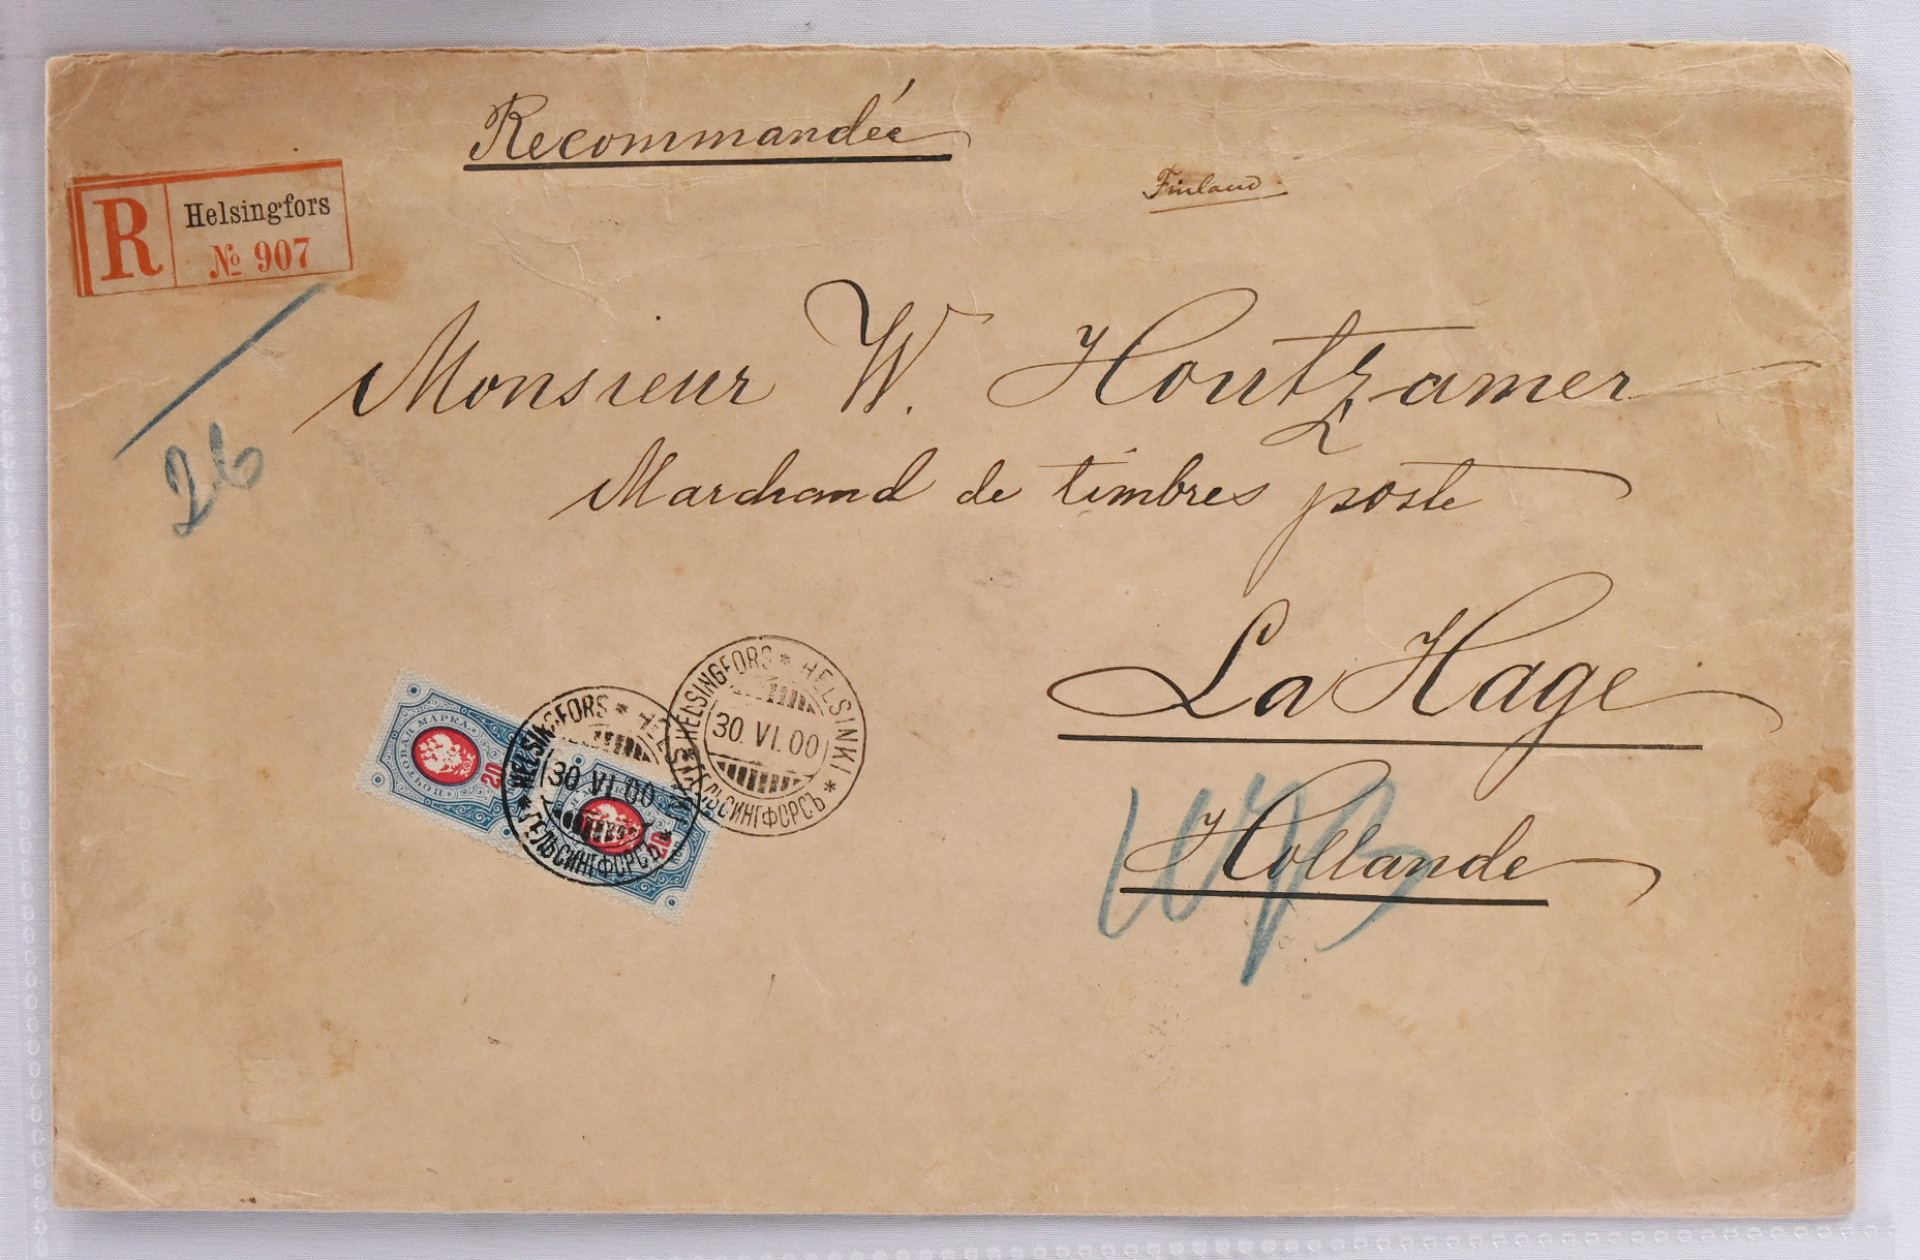 Recommandée
Finland
R Helsingfors
№ 907
26
Monsieur W. Houtzamer
Marchand de timbres poste
La Hage
Hollande
ПОЧТОВАЯ МАРКА
20
20
HELSINGFORS * HELSINKI * ГЕЛЬСИНГФОРСЪ *
30 VI 00
HELSINGFORS * HELSINKI * ГЕЛЬСИНГФОРСЪ *
30. VI. 00